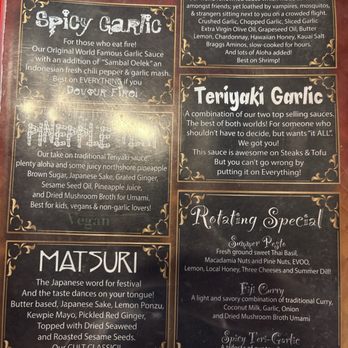 Spicy Garlic
For those who eat fire!
Our Original World Famous Garlic Sauce
with an addition of "Sambal Oelek" an
Indonesian fresh chili pepper & garlic mash.
Best on EVERYTHING if you
Devour Fire!
Our take on traditional Teriyaki sauce
plenty aloha and some juicy northshore pineapple
Brown Sugar, Japanese Sake, Grated Ginger,
Sesame Seed Oil, Pineapple Juice,
and Dried Mushroom Broth for Umami.
Best for kids, vegans & non-garlic lovers!
Vegan
MATSURI
The Japanese word for festival
And the taste dances on your tongue!
Butter based, Japanese Sake, Lemon Ponzu,
Kewpie Mayo, Pickled Red Ginger,
Topped with Dried Seaweed
and Roasted Sesame Seeds.
Our CULT CLASSIC!
amongst friends; yet loathed by vampires, mosquitos,
& strangers sitting next to you on a crowded flight.
Crushed Garlic, Chopped Garlic, Sliced Garlic
Extra Virgin Olive Oil, Grapeseed Oil, Butter
Lemon, Chardonnay, Hawaiian Honey, Kauai Salt
Braggs Aminos, slow cooked for hours.
And lots of Aloha added!
Best on Shrimp!
Teriyaki Garlic
A combination of our two top selling sauces.
The best of both worlds! For someone who
shouldn't have to decide, but wants "it ALL".
We got you!
This sauce is awesome on Steaks & Tofu
But you can't go wrong by
putting it on Everything!
Rotating Special
Summer Pesto
Fresh ground sweet Thai Basil,
Macadamia Nuts and Pine Nuts, EVOO,
Lemon, Local Honey, Three Cheeses and Summer Dill!
Fiji Curry
A light and savory combination of traditional Curry,
Coconut Milk, Garlic, Onion
and Dried Mushroom Broth Umami
Spicy Teri-Garlic